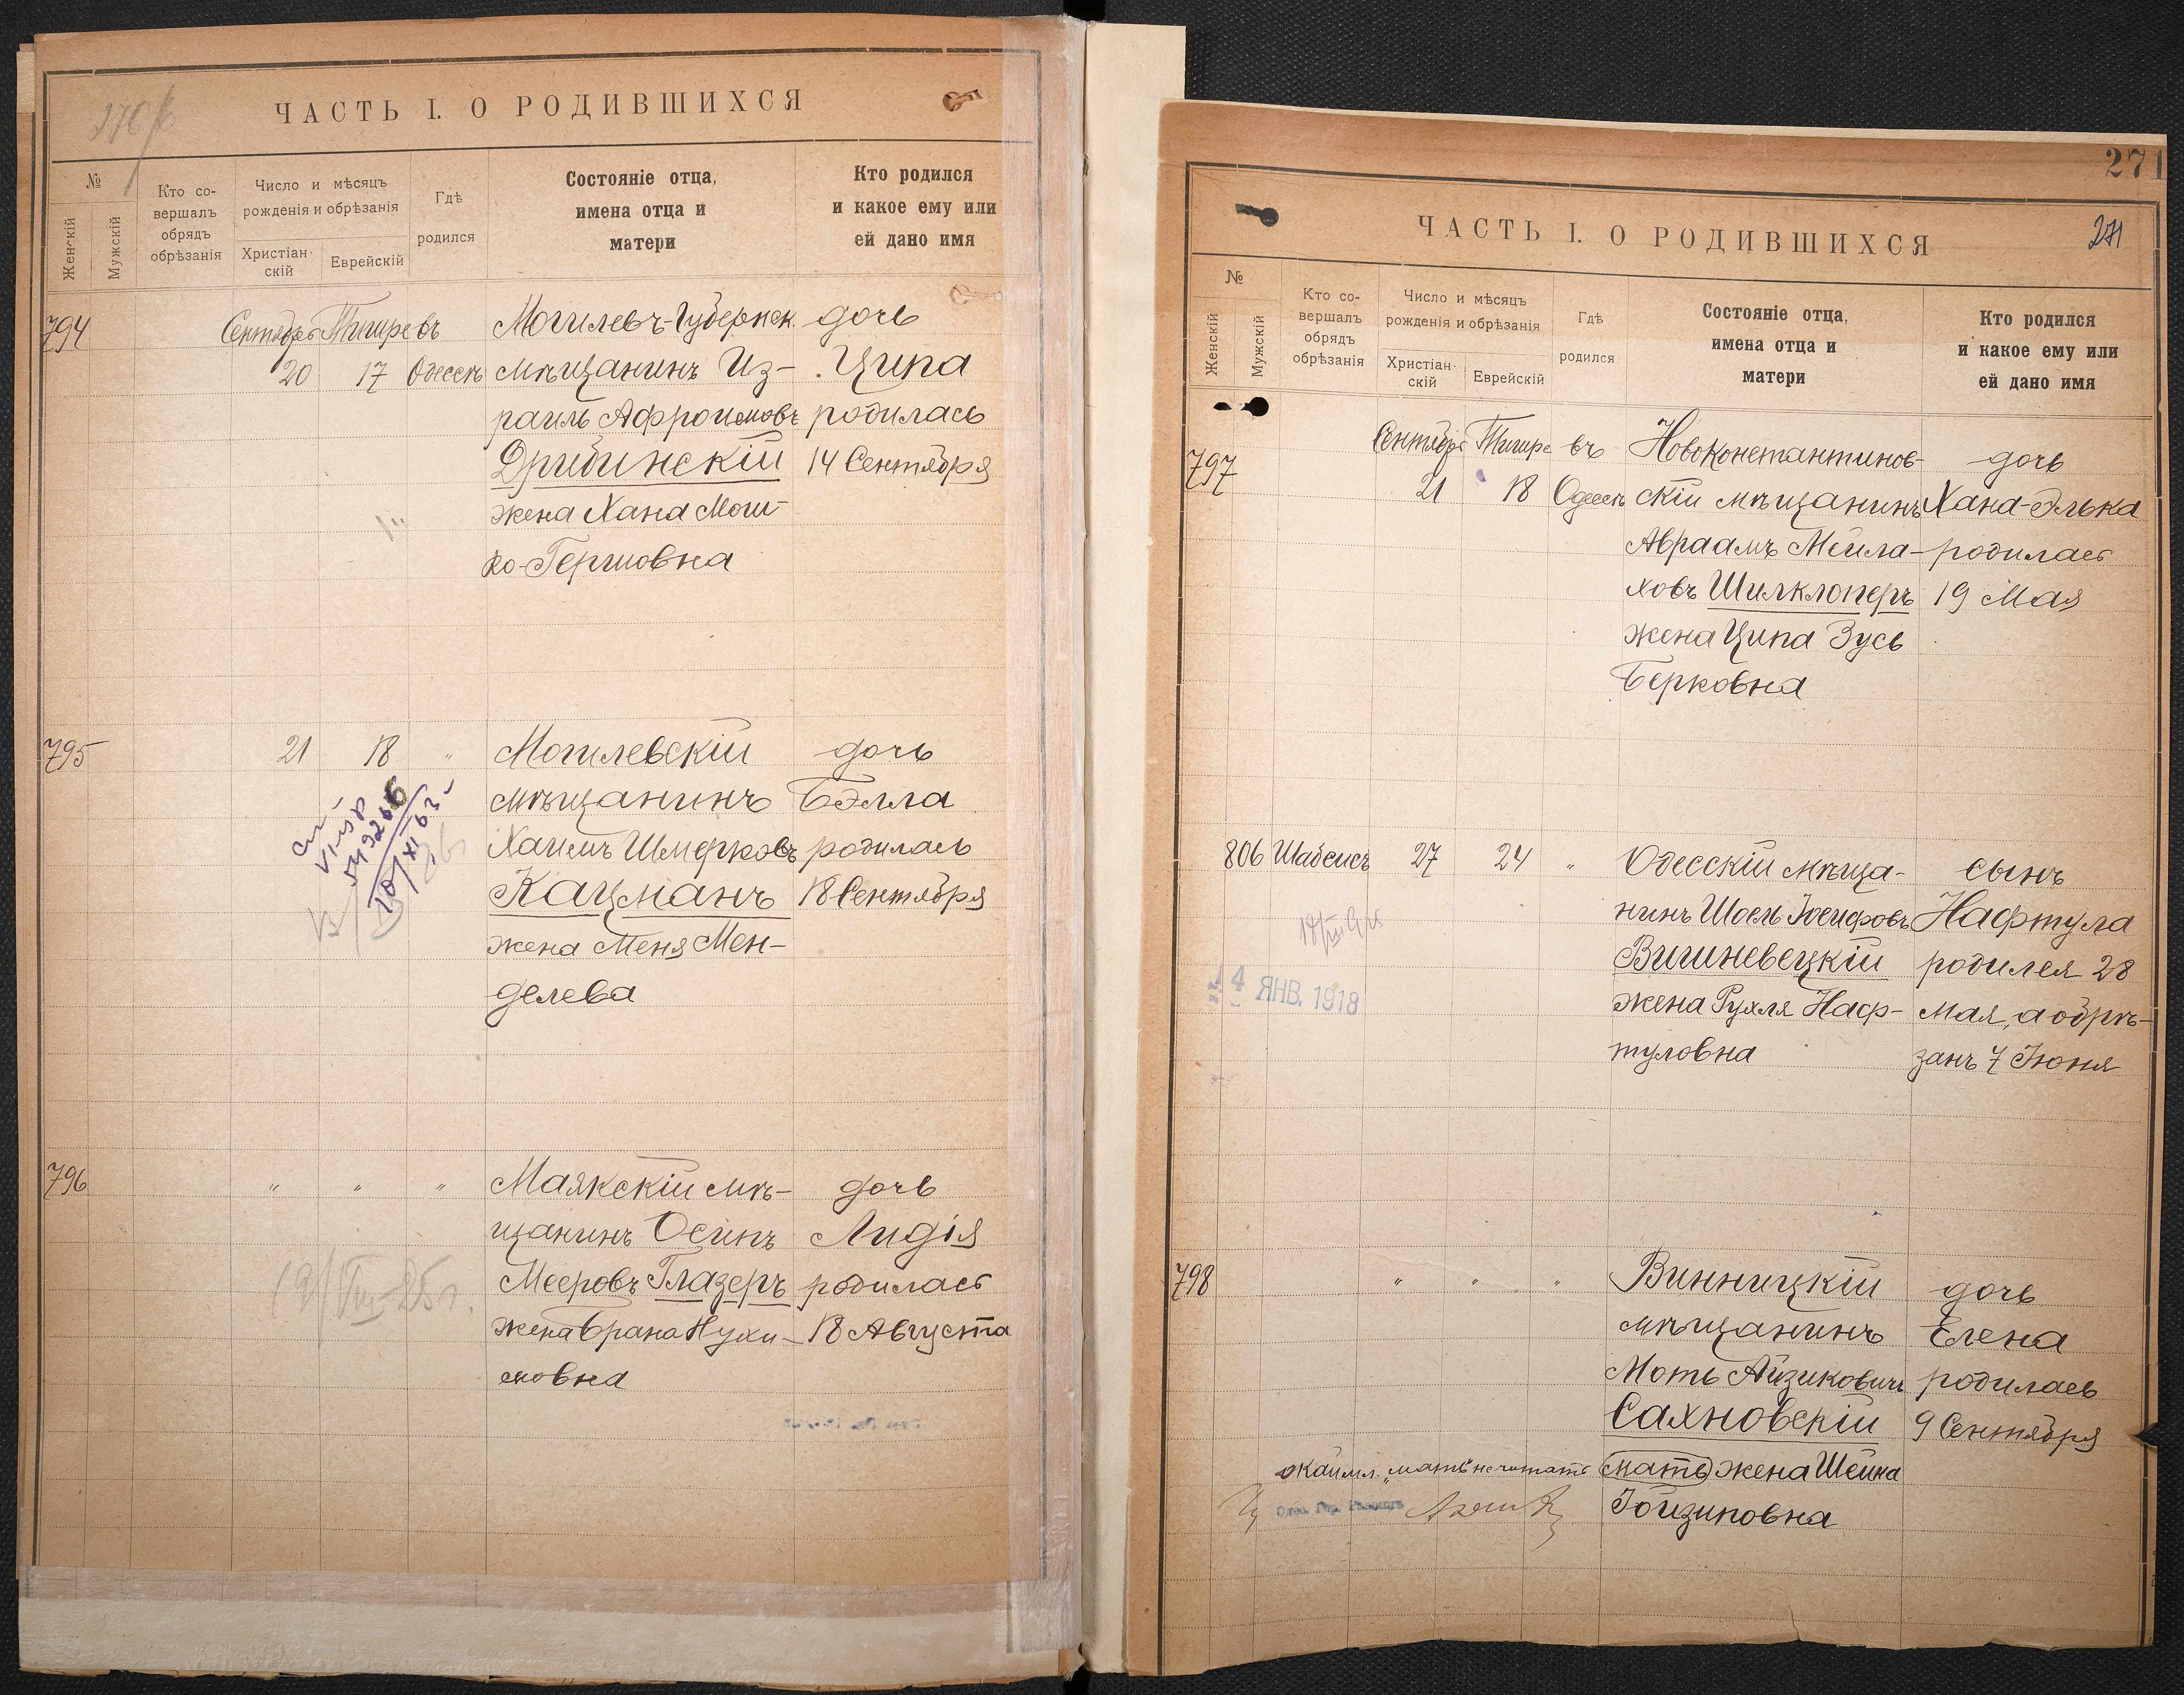 ЧАСТЬ I. О РОДИВШИХСЯ
№
Женскій
Мужскій
Кто со-
вершалъ
обрядъ
обрѣзанія
Число и мѣсяцъ
рожденія и обрѣзанія
Христіан-
скій
Еврейскій
Гдѣ
родился
Состояніе отца,
имена отца и
матери
Кто родился
и какое ему или
ей дано имя
794
Сентября Тишре въ
20 17 Одессѣ
Могилевъ-Губернск.
мѣщанинъ Из-
раиль Афроимовъ
Дрибинскій
жена Хана Мош-
ко-Гершовна
дочь
Ципа
родилась
14 Сентября
795
21 18 "
Могилевскій
мѣщанинъ
Хаимъ Шмерковъ
Кацманъ
жена Меня Мен-
делева
дочь
Бэлла
родилась
18 Сентября
796
" " "
Маякскій мѣ-
щанинъ Осипъ
Мееровъ Глазеръ
жена Брана Нухи-
мовна
дочь
Лидія
родилась
18 Августа
271
ЧАСТЬ I. О РОДИВШИХСЯ
271
№
Женскій
Мужскій
Кто со-
вершалъ
обрядъ
обрѣзанія
Число и мѣсяцъ
рожденія и обрѣзанія
Христіан-
скій
Еврейскій
Гдѣ
родился
Состояніе отца,
имена отца и
матери
Кто родился
и какое ему или
ей дано имя
797
Сентября Тишре въ
21 18 Одессѣ
Новоконстантинов-
скій мѣщанинъ
Авраамъ Мейла-
ховъ Шилклоперъ
жена Ципа Зусь
Берковна
дочь
Хана-Элька
родилась
19 Мая
806 Шабсисъ 27 24 "
14 ЯНВ. 1918
Одесскій мѣща-
нинъ Шоель Іосифовъ
Вишневецкій
жена Рухля Наф-
туловна
сынъ
Нафтула
родился 28
Мая, а обрѣ-
занъ 7 Іюня
798
" " "
Винницкій
мѣщанинъ
Моть Айзиковичъ
Сахновскій
(мать) жена Шейна
Іойзиповна
дочь
Елена
родилась
9 Сентября
"мать" не читать